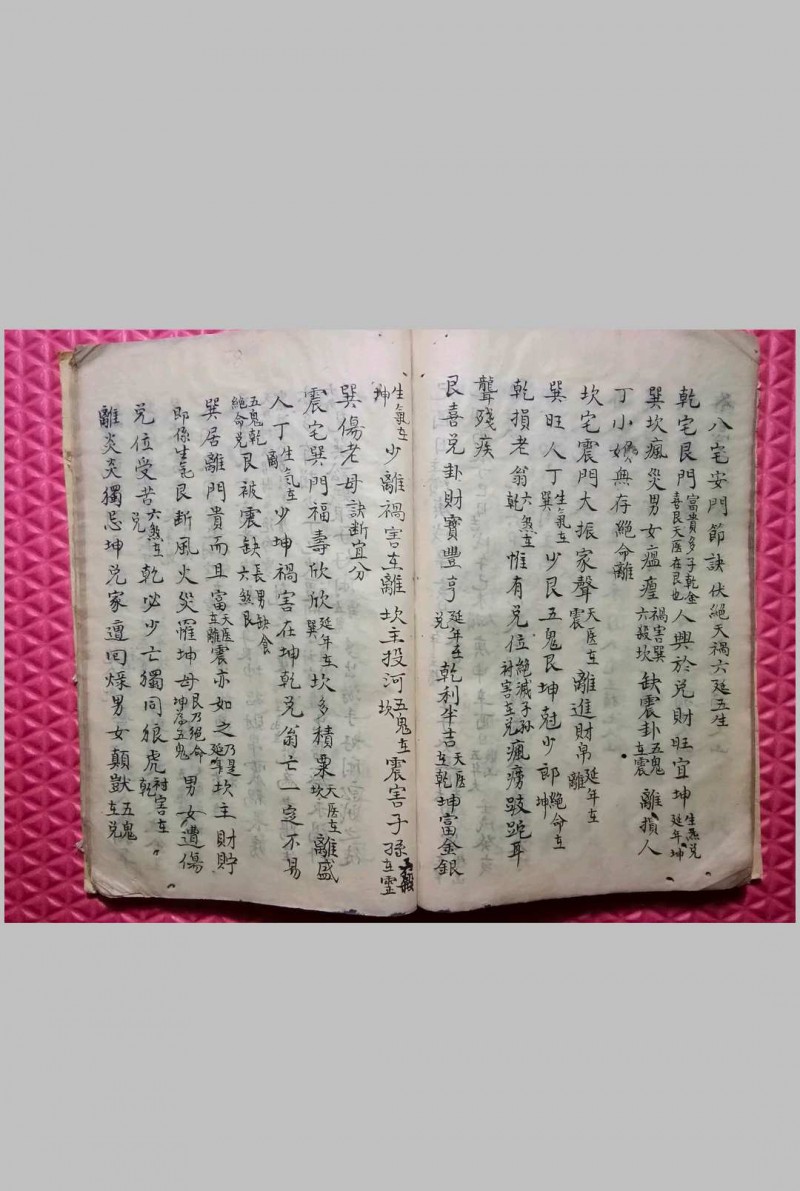 八宅安門節訣伏絕天禍六延五生
乾宅艮門富貴多子乾金喜艮天医在艮也人興於兑財旺宜坤生氣兑延年坤
巽坎瘋災男女瘟瘟禍害巽六殺坎缺震卦五鬼在震離損人
丁小媍無存絕命離
坎宅震門大振家聲天医在震離進財帛延年在離
巽旺人丁生氣在巽少艮五鬼艮坤尅少郎絕命在坤
乾損老翁六煞在乾惟有兑位絕滅子孫禍害在兑瘋癆跛跎耳
聾殘疾
艮喜兑卦財寶豐亨延年在兑乾利半吉天医在乾坤富金銀
生氣在坤少離禍害在離坎主投河五鬼在坎震害子孫六殺在震
巽傷老母訣断宜分
震宅巽門福壽欣欣延年在巽坎多積粟天医在坎離盛
人丁生氣在離少坤禍害在坤乾兑翁亡一定不易
五鬼乾絕命兑艮被震缺長男缺食六煞艮
巽居離門貴而且富天医在離震亦如之乃是延年坎主財貯
即係生氣艮断風火災罹坤母艮乃絕命坤為五鬼男女遭傷
兑位受苦六煞在兑乾必少亡獨同狼虎禍害在乾
離炎炎獨忌坤兑家遭回燥男女顛獃五鬼在兑